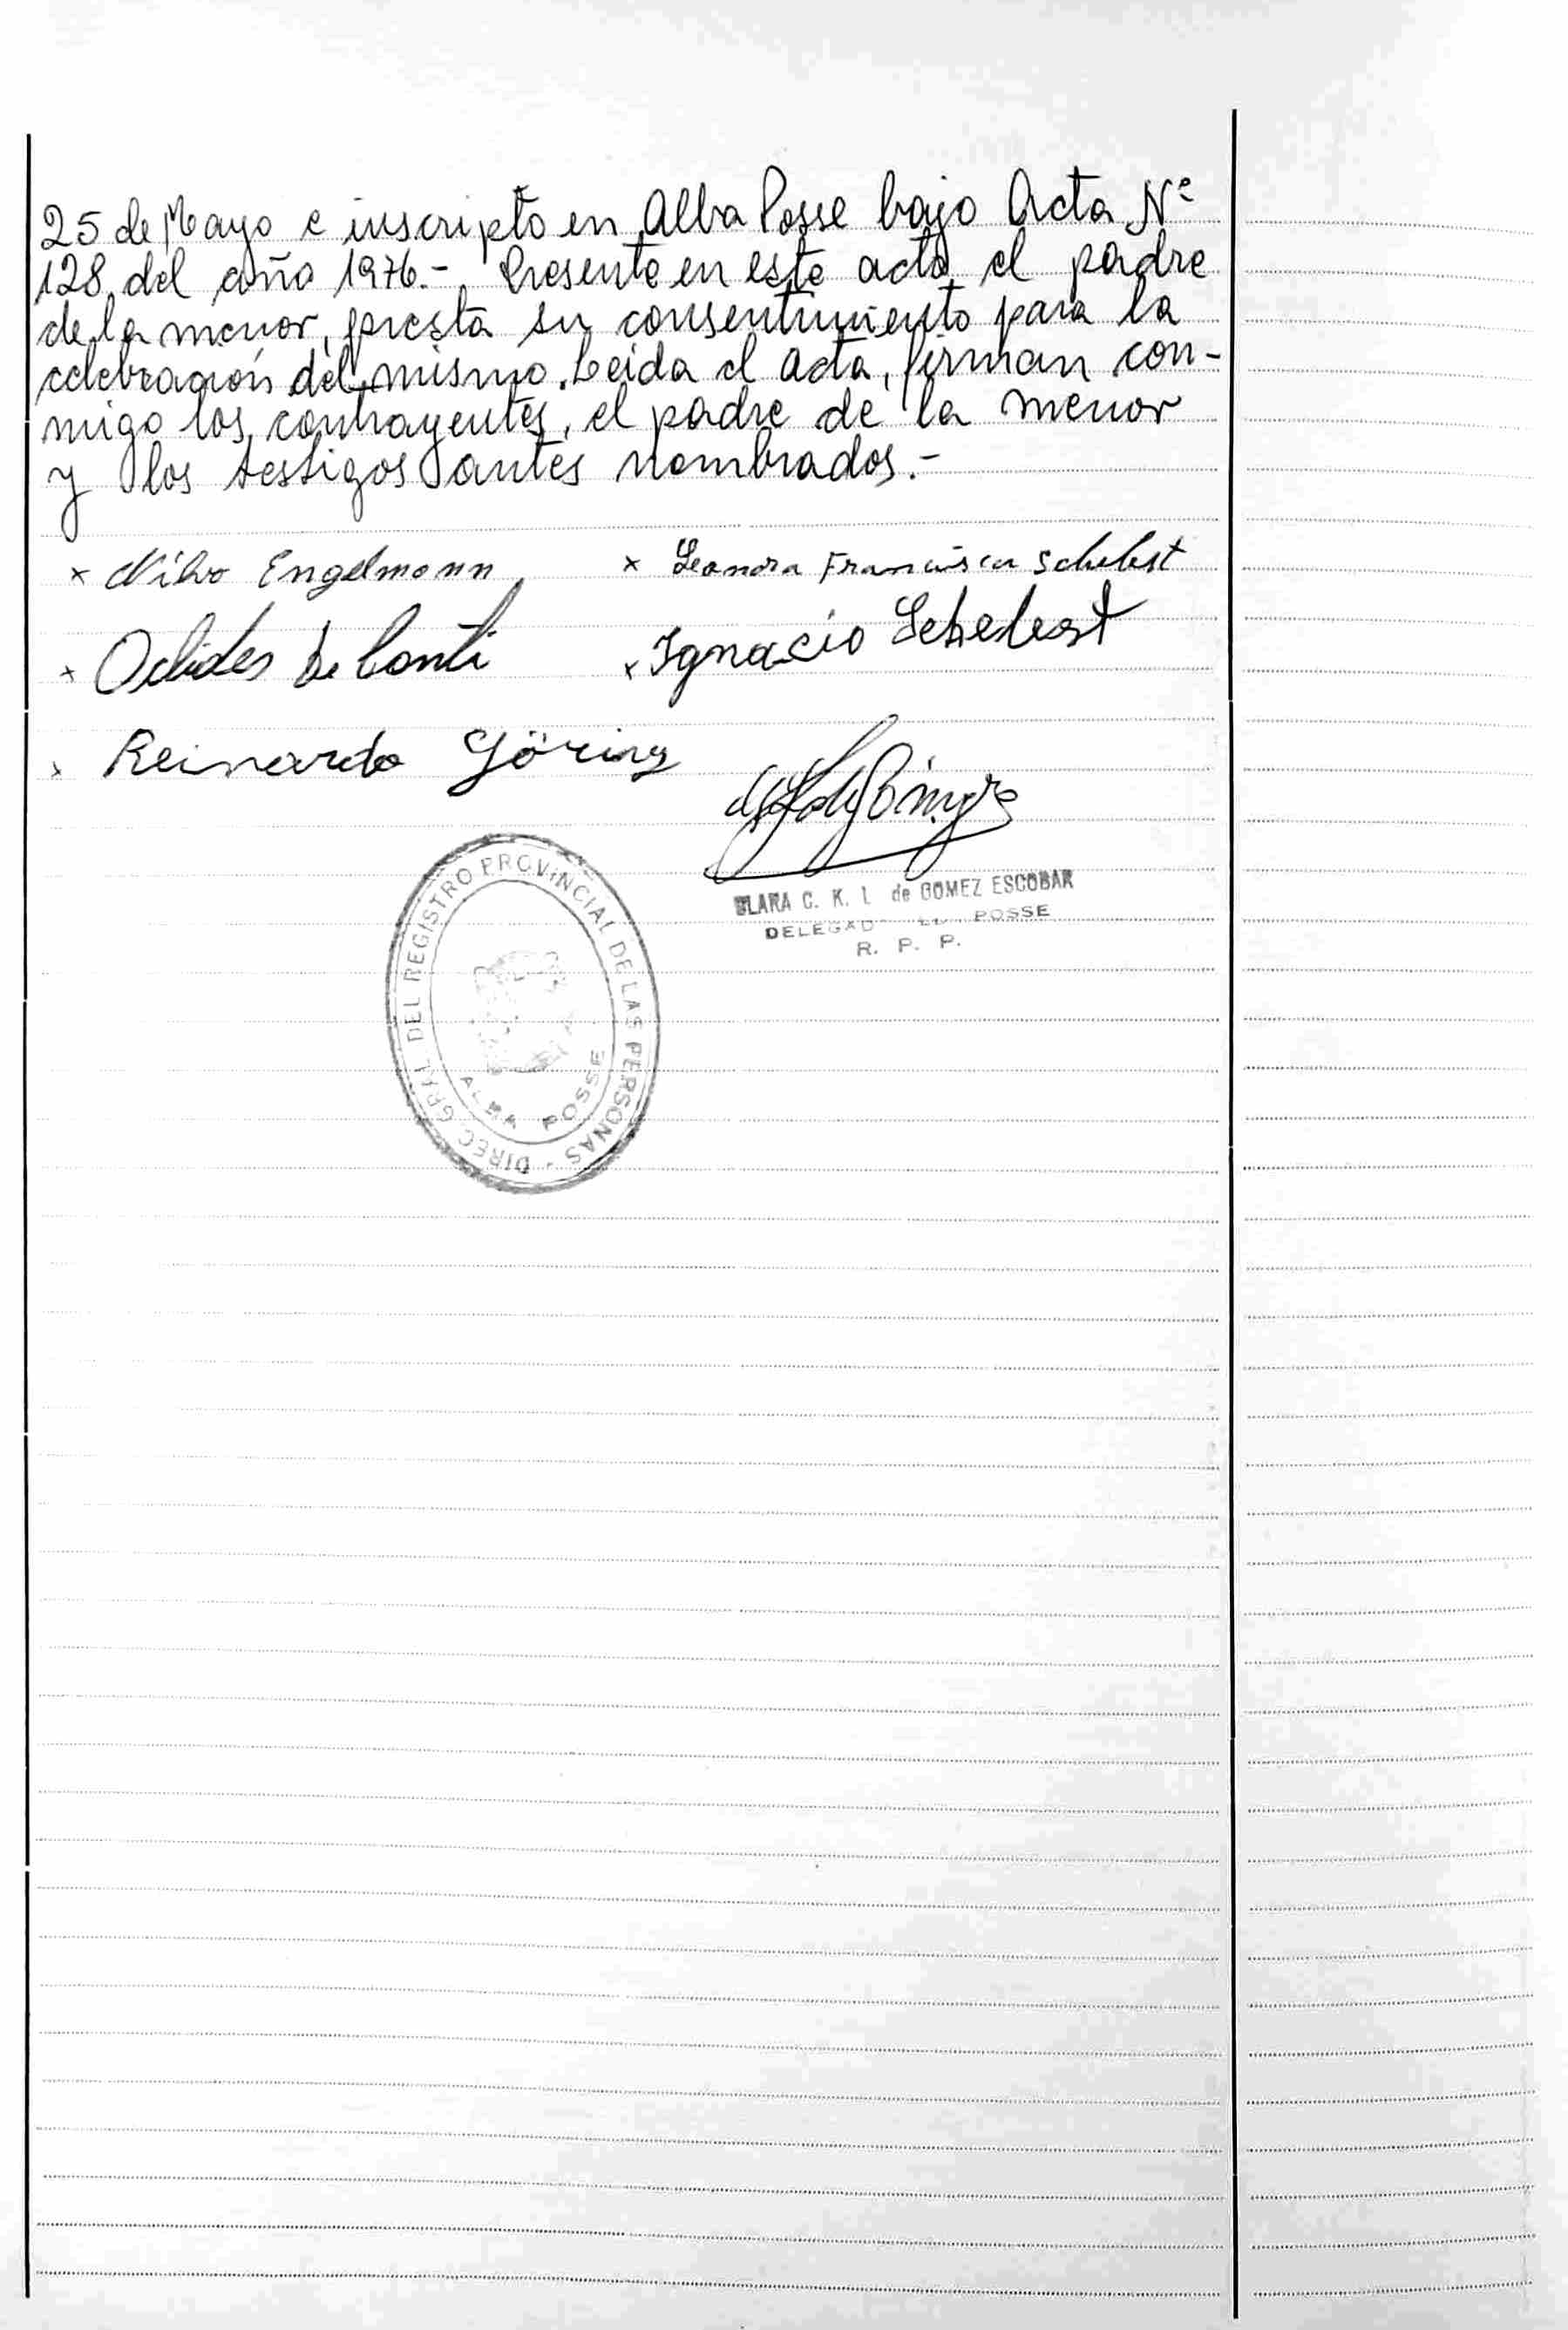 25 de Mayo e inscripto en Alba Posse bajo Acta Nº
128 del año 1976.- Presente en este acto el padre
de la menor, presta su consentimiento para la
celebración del mismo. Leida el Acta, firman con-
migo los contrayentes, el padre de la menor
y los testigos antes nombrados.-
x Nilvo Engelmann x Leonora Francisca Schelest
x Oclides De Conti x Ignacio Schelest
x Reinardo Göring
CLARA C. K. L. de GOMEZ ESCOBAR
POSSE
R. P. P.
DIREC. GRAL. DEL REGISTRO PROVINCIAL DE LAS PERSONAS -
ALBA POSSE